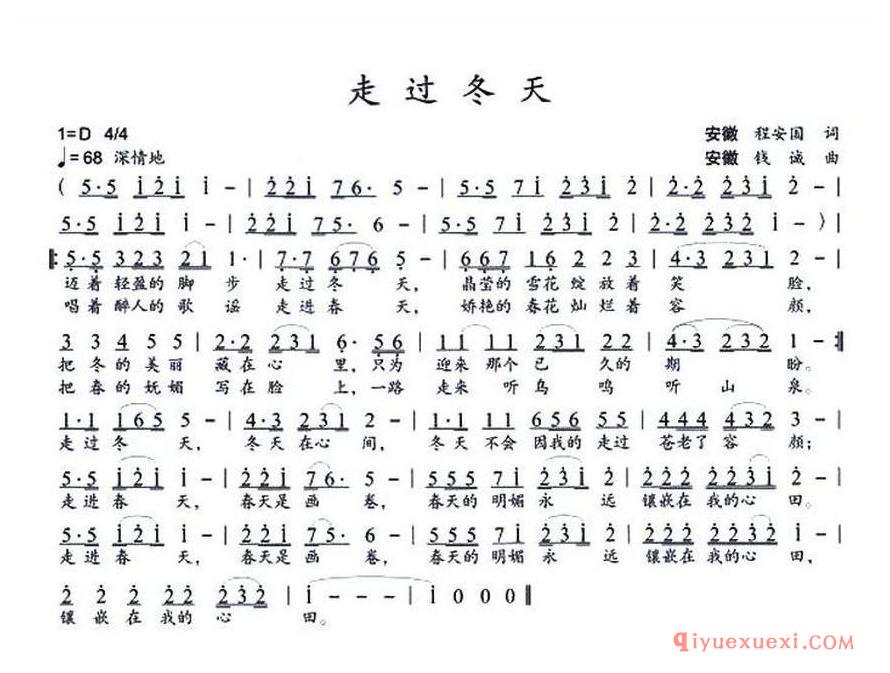 走过冬天
1=D 4/4
安徽 程安国 词
♩=68 深情地
安徽 钱诚 曲
( 5·5 i2i i - | 22i 76· 5 - | 5·5 7i 23i 2 | 2·2 23i 2 - |
5·5 i2i i - | 22i 75· 6 - | 5·5 7i 23i 2 | 2·2 23i i - ) |
‖: 5·5 323 21 1· | 7·7 676 5 - | 667 16 2 2 | 4·3 231 2 - |
迈着轻盈的脚步 走过冬天, 晶莹的雪花绽放着笑脸,
唱着醉人的歌谣 走进春天, 娇艳的春花灿烂着容颜,
3 3 45 5 | 2·2 231 6· 56 | 11 11 231 2 | 4·3 232 1 - :‖
把冬的美丽 藏在心里,只为 迎来那个已久的期盼。
把春的妩媚 写在脸上,一路 走来听鸟鸣听山泉。
1·1 165 5 - | 4·3 231 2 - | 1·1 11 656 55 | 444 4432 2 - |
走过冬天, 冬天在心间, 冬天不会因我的走过 苍老了容颜;
5·5 i2i i - | 22i 76· 6 - | 555 7i 23i 2 | 222 223i 2 - |
走进春天, 春天是画卷, 春天的明媚永远 镶嵌在我的心田。
5·5 i2i i - | 22i 75· 6 - | 555 7i 23i 2 | 222 223i i - |
走进春天, 春天是画卷, 春天的明媚永远 镶嵌在我的心田,
2 2 22 232 | i - - - | i 0 0 0 ‖
镶嵌在我的心田。
qiyuexuexi.com